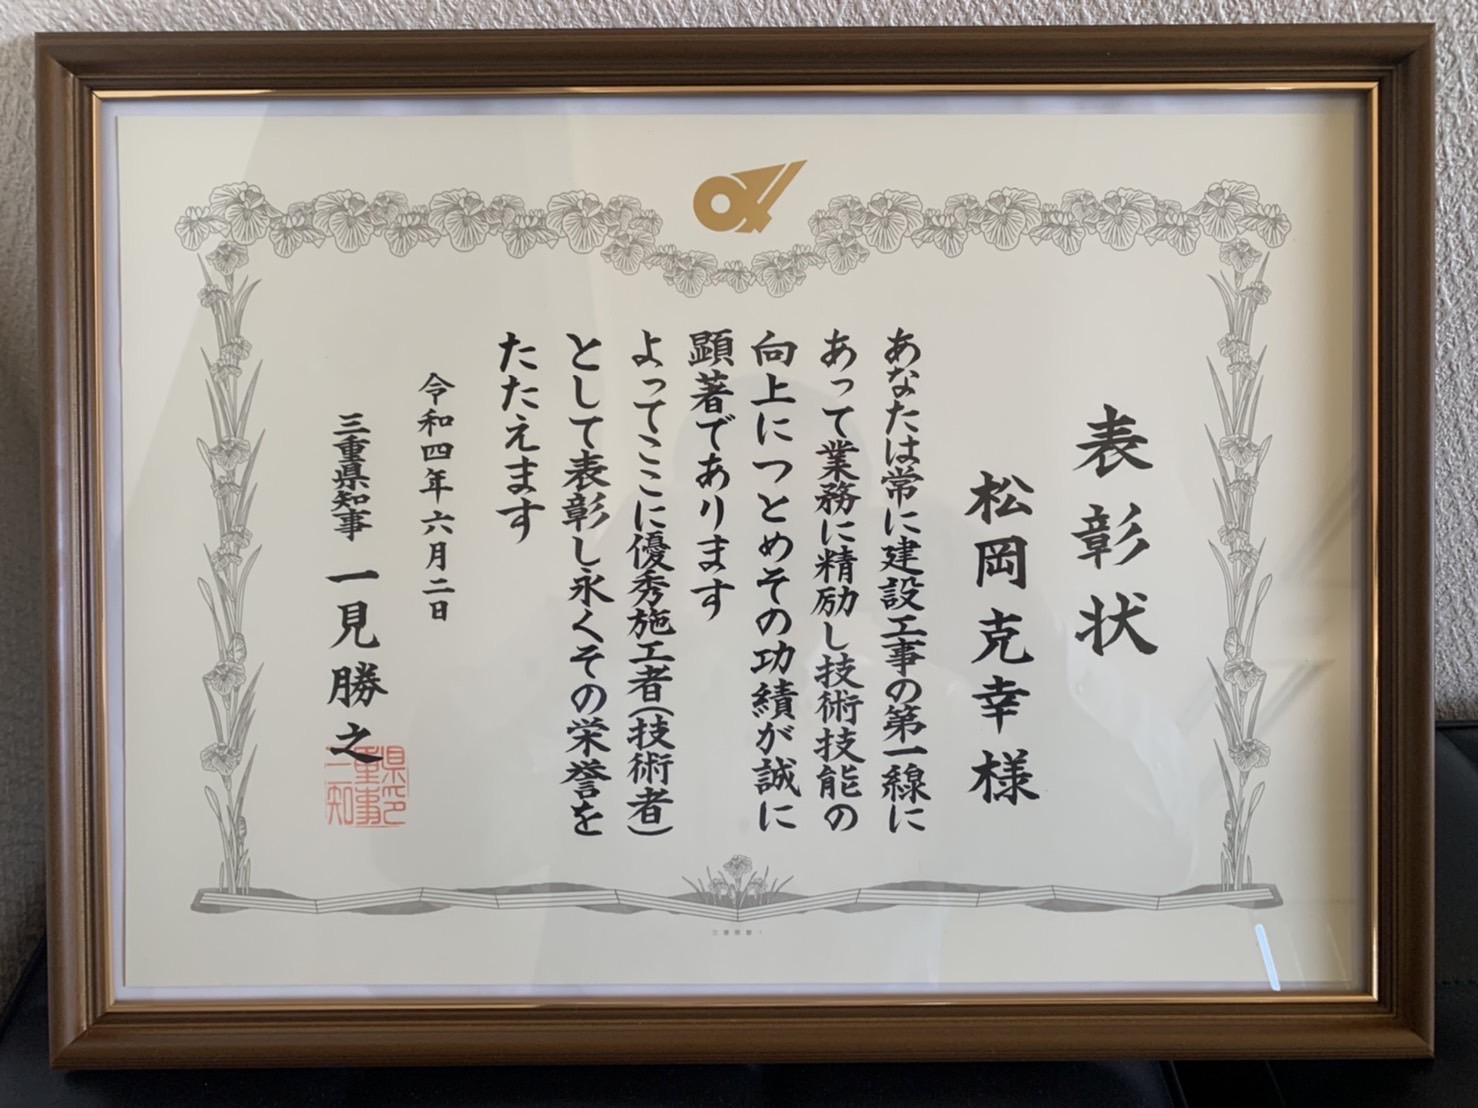 表彰状
松岡克幸様
あなたは常に建設工事の第一線に
あって業務に精励し技術技能の
向上につとめその功績が誠に
顕著であります
よってここに優秀施工者(技術者)
として表彰し永くその栄誉を
たたえます
令和四年六月二日
三重県知事 一見勝之